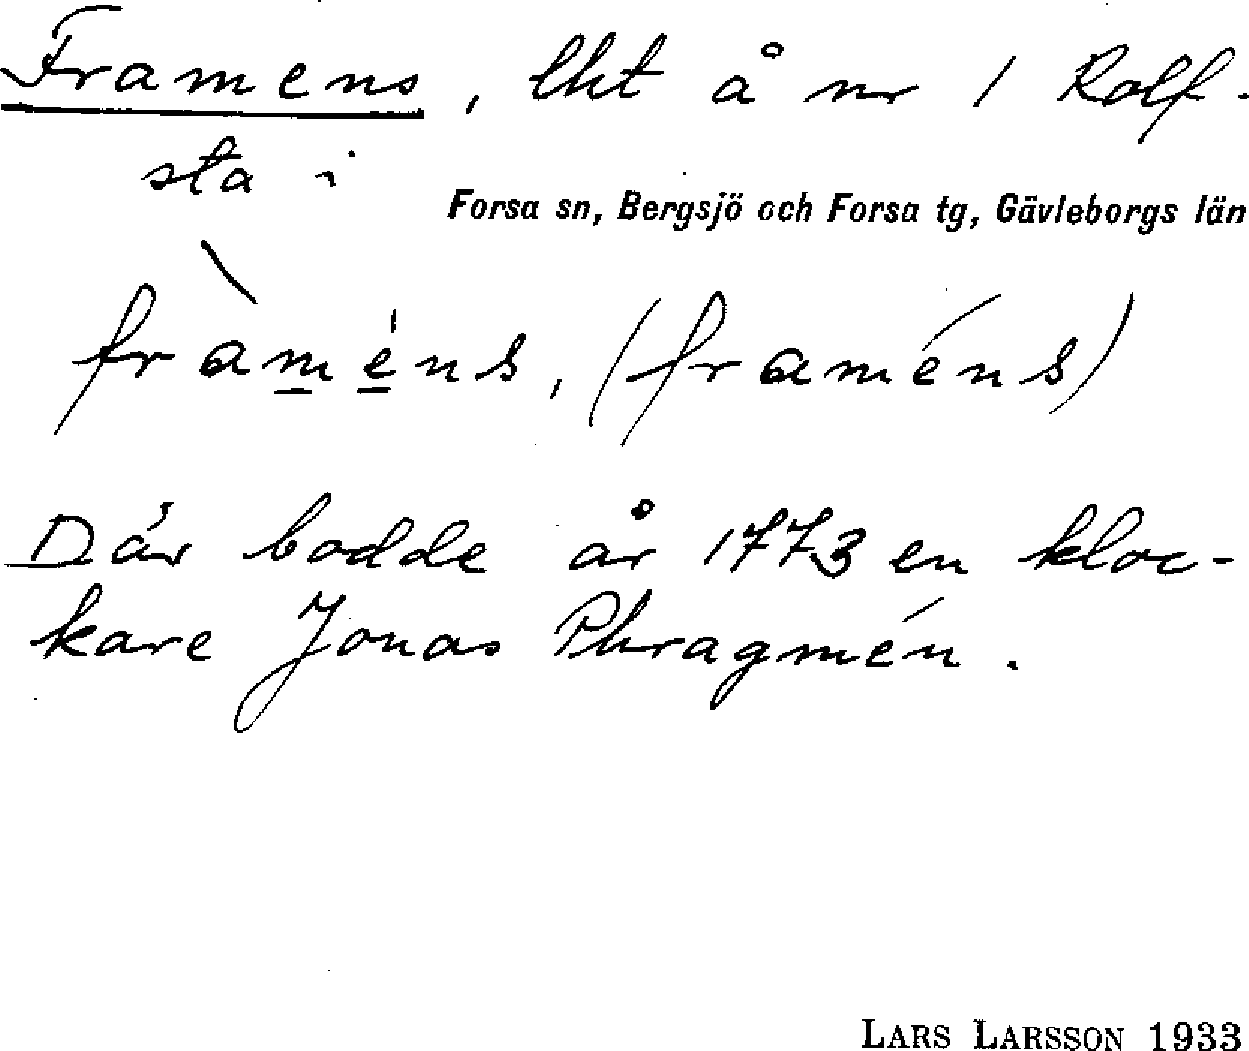 Framens, lht å nr 1 Rolf-
sta i
Forsa sn, Bergsjö och Forsa tg, Gävleborgs län
fràméns, (framéns)
Där bodde år 1773 en kloc-
kare Jonas Phragmén.
LARS LARSSON 1933